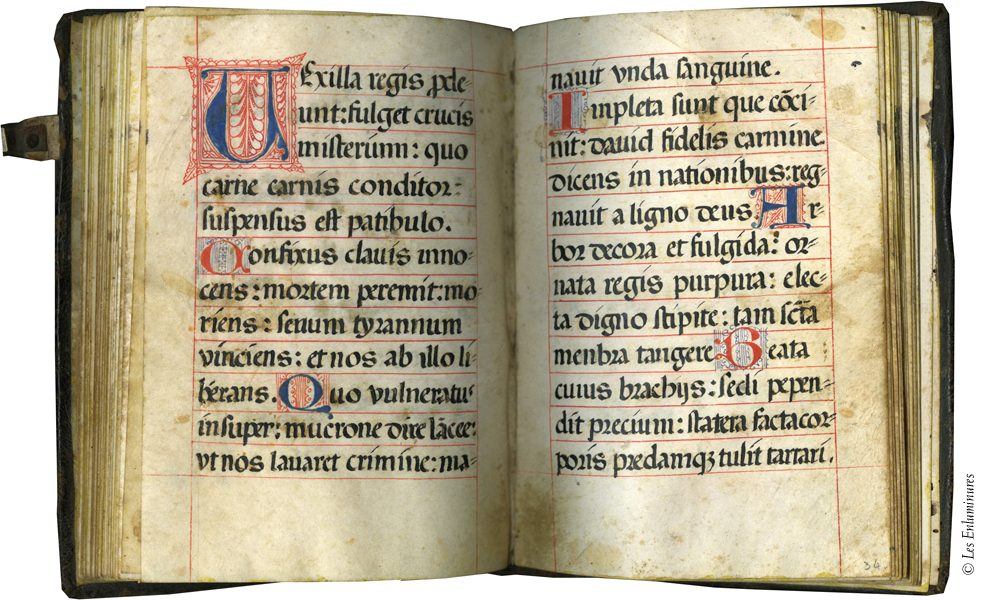 UExilla regis ꝓde
unt: fulget crucis
misterium: quo
carne carnis conditor:
suspensus est patibulo.
Confixus clauis inno-
cens: mortem peremit: mo-
riens: seuum tyrannum
vinciens: et nos ab illo li-
berans. Quo vulneratus
insuper: mucrone dire lãcee:
vt nos lauaret crimine: ma-
nauit vnda sanguine.
Impleta sunt que cõci-
nit: dauid fidelis carmine.
dicens in nationibus: reg-
nauit a ligno deus. Ar-
bor decora et fulgida: or-
nata regis purpura: elec-
ta digno stipite: tam sctã
menbra tangere Beata
cuius brachijs: sedi pepen-
dit precium: statera facta cor-
poris predamqꝫ tulit tartari.
34
© Les Enluminures